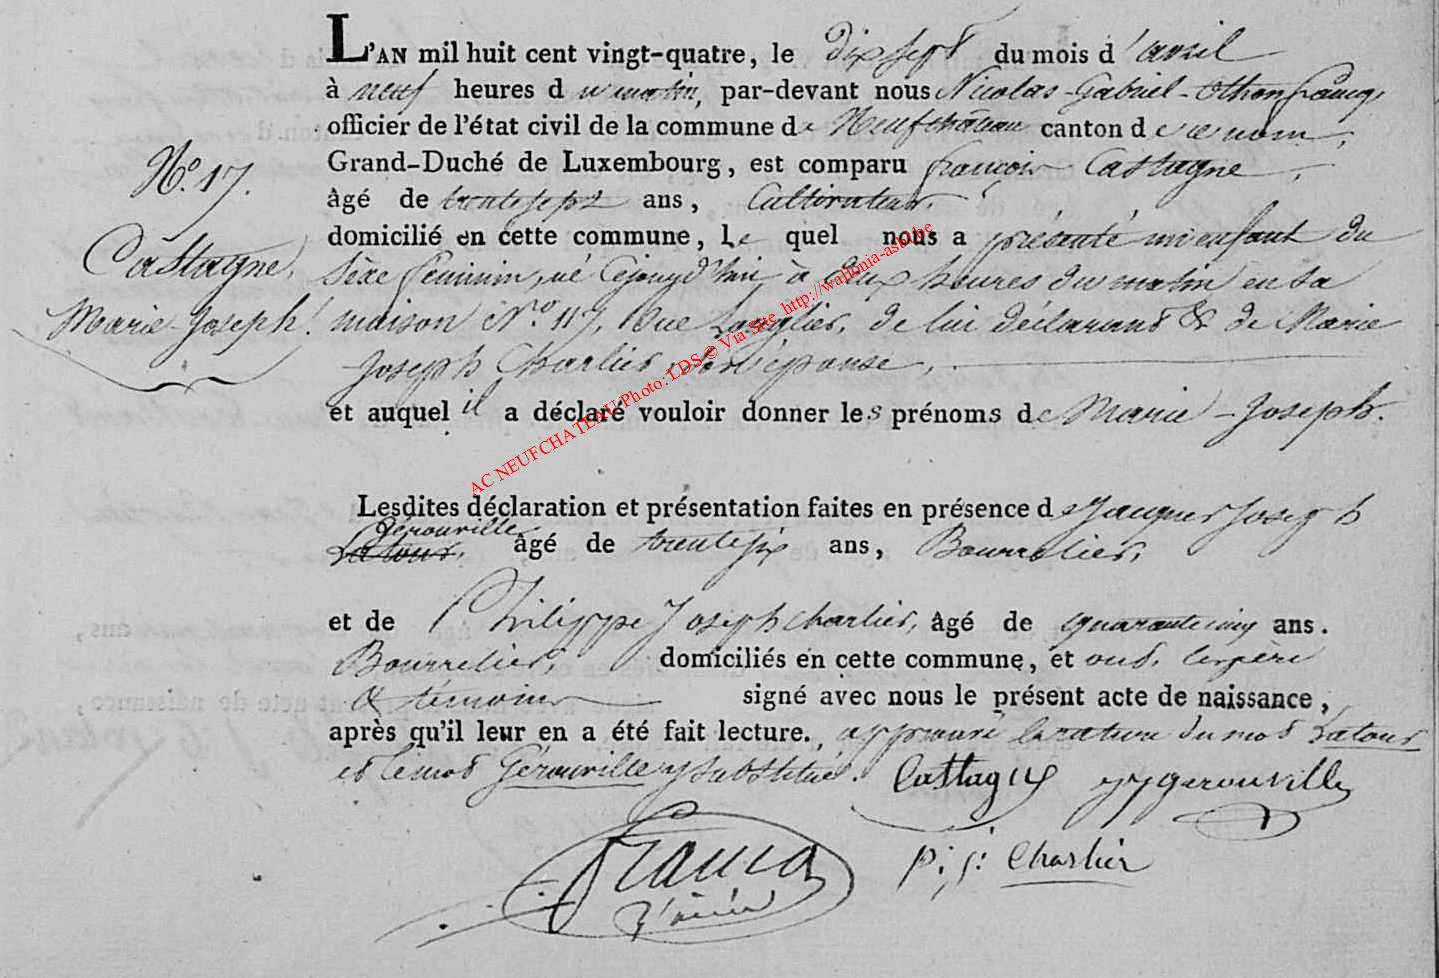 L'AN mil huit cent vingt-quatre, le dix sept du mois d'avril
à neuf heures du matin, par-devant nous Nicolas-Gabriel-Othon francq,
officier de l'état civil de la commune de Neufchâteau canton de ce nom,
N.o 17.
Grand-Duché de Luxembourg, est comparu françois Castagne,
âgé de trentesept ans, Cultivateur,
domicilié en cette commune, Le quel nous a présenté un enfant du
Castagne,
sexe féminin, né cejourd'hui à deux heures du matin en sa
Marie-Joseph.
maison N.o 117, rue de lui déclarant & de Marie
Joseph Charlier, son épouse,
et auquel il a déclaré vouloir donner les prénoms de Marie-Joseph.
Lesdites déclaration et présentation faites en présence de Jacques Joseph
Gérouville
Latour, âgé de trentesix ans, Bourrelier,
et de Philippe Joseph Charlier, âgé de quarantecinq ans.
Bourrelier, domiciliés en cette commune, et ont, les père
& témoins signé avec nous le présent acte de naissance,
après qu'il leur en a été fait lecture. approuvé la rature du mot Latour
et le mot Gérouville y substitué.
Castagne jj gerouville
francq
P: j: Charlier
AC NEUFCHATEAU Photo: LDS © Via Site http://wallonia-asbl.be